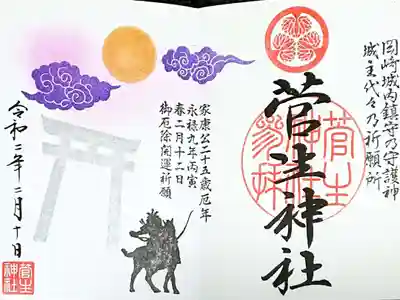 岡崎城内鎮守乃守護神
城主代々乃祈願所
菅生神社
菅生
参拝
家康公二十五歳厄年
永禄九年丙寅
春二月十二日
御厄除開運祈願
令和二年二月十日
菅生
神社